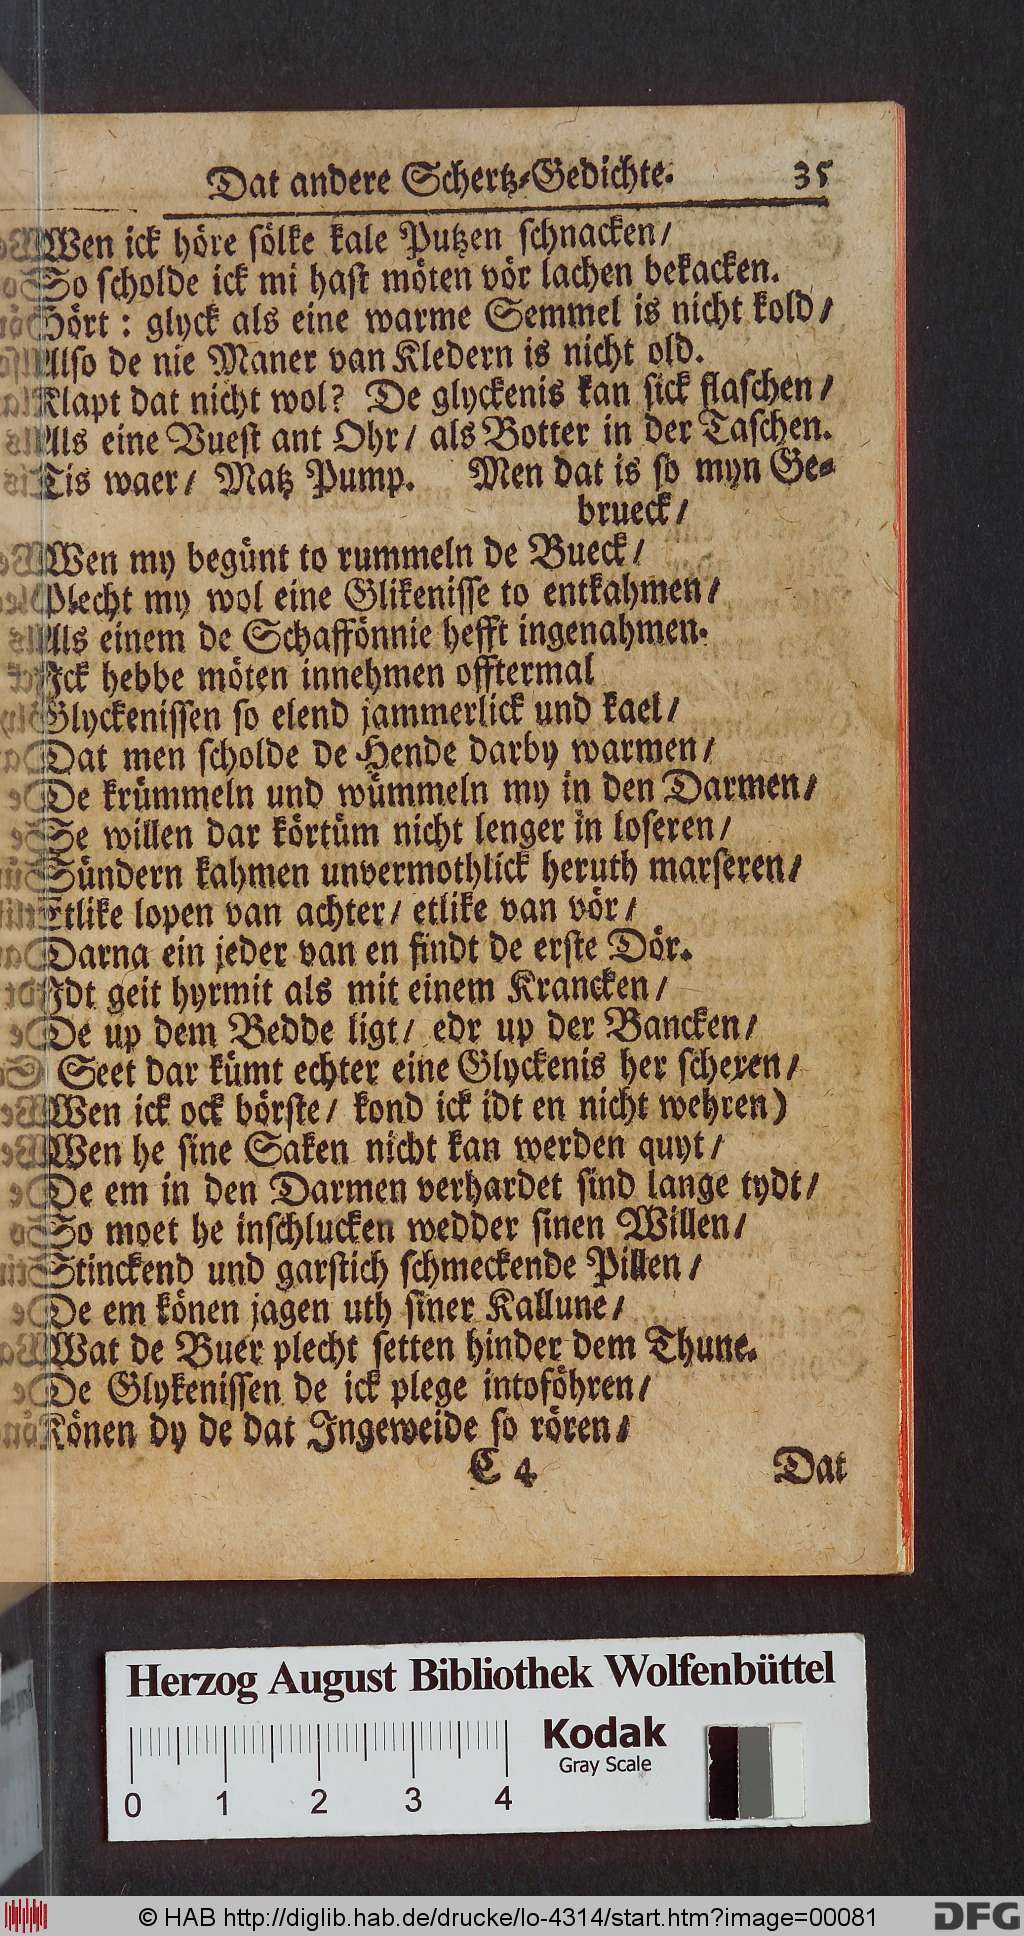 Dat andere Schertz-Gedichte. 35
Wen ick höre sölke kale Putzen schnacken/
So scholde ick mi hast möten vör lachen bekacken.
Hört : glyck als eine warme Semmel is nicht kold/
Also de nie Maner van Kledern is nicht old.
Klapt dat nicht wol? De glyckenis kan sick flaschen/
Als eine Vuest ant Ohr/ als Botter in der Taschen.
Tis waer/ Matz Pump. Men dat is so myn Ge-
brueck/
Wen my begünt to rummeln de Bueck/
Plecht my wol eine Glikenisse to entkahmen/
Als einem de Schaffönnie hefft ingenahmen.
Ick hebbe möten innehmen offtermal
Glyckenissen so elend jammerlick und kael/
Dat men scholde de Hende darby warmen/
De krümmeln und wümmeln my in den Darmen/
Se willen dar körtüm nicht lenger in loseren/
Sündern kahmen unvermothlick heruth marseren/
Etlike lopen van achter/ etlike van vör/
Darna ein jeder van en findt de erste Dör.
Idt geit hyrmit als mit einem Krancken/
De up dem Bedde ligt/ edr up der Bancken/
Seet dar kümt echter eine Glyckenis her scheren/
Wen ick ock börste/ kond ick idt en nicht wehren)
Wen he sine Saken nicht kan werden quyt/
De em in den Darmen verhardet sind lange tydt/
So moet he inschlucken wedder sinen Willen/
Stinckend und garstich schmeckende Pillen/
De em könen jagen uth siner Kallune/
Wat de Buer plecht setten hinder dem Thune.
De Glykenissen de ick plege intoföhren/
Könen dy de dat Ingeweide so rören/
C 4 Dat
Herzog August Bibliothek Wolfenbüttel
Kodak
Gray Scale
0 1 2 3 4
© HAB http://diglib.hab.de/drucke/lo-4314/start.htm?image=00081
DFG